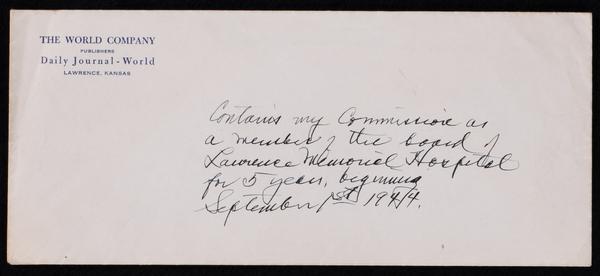 THE WORLD COMPANY
PUBLISHERS
Daily Journal-World
LAWRENCE, KANSAS
Contains my Commission as
a member of the board of
Lawrence Memorial Hospital
for 5 years, beginning
September 1st 1944.